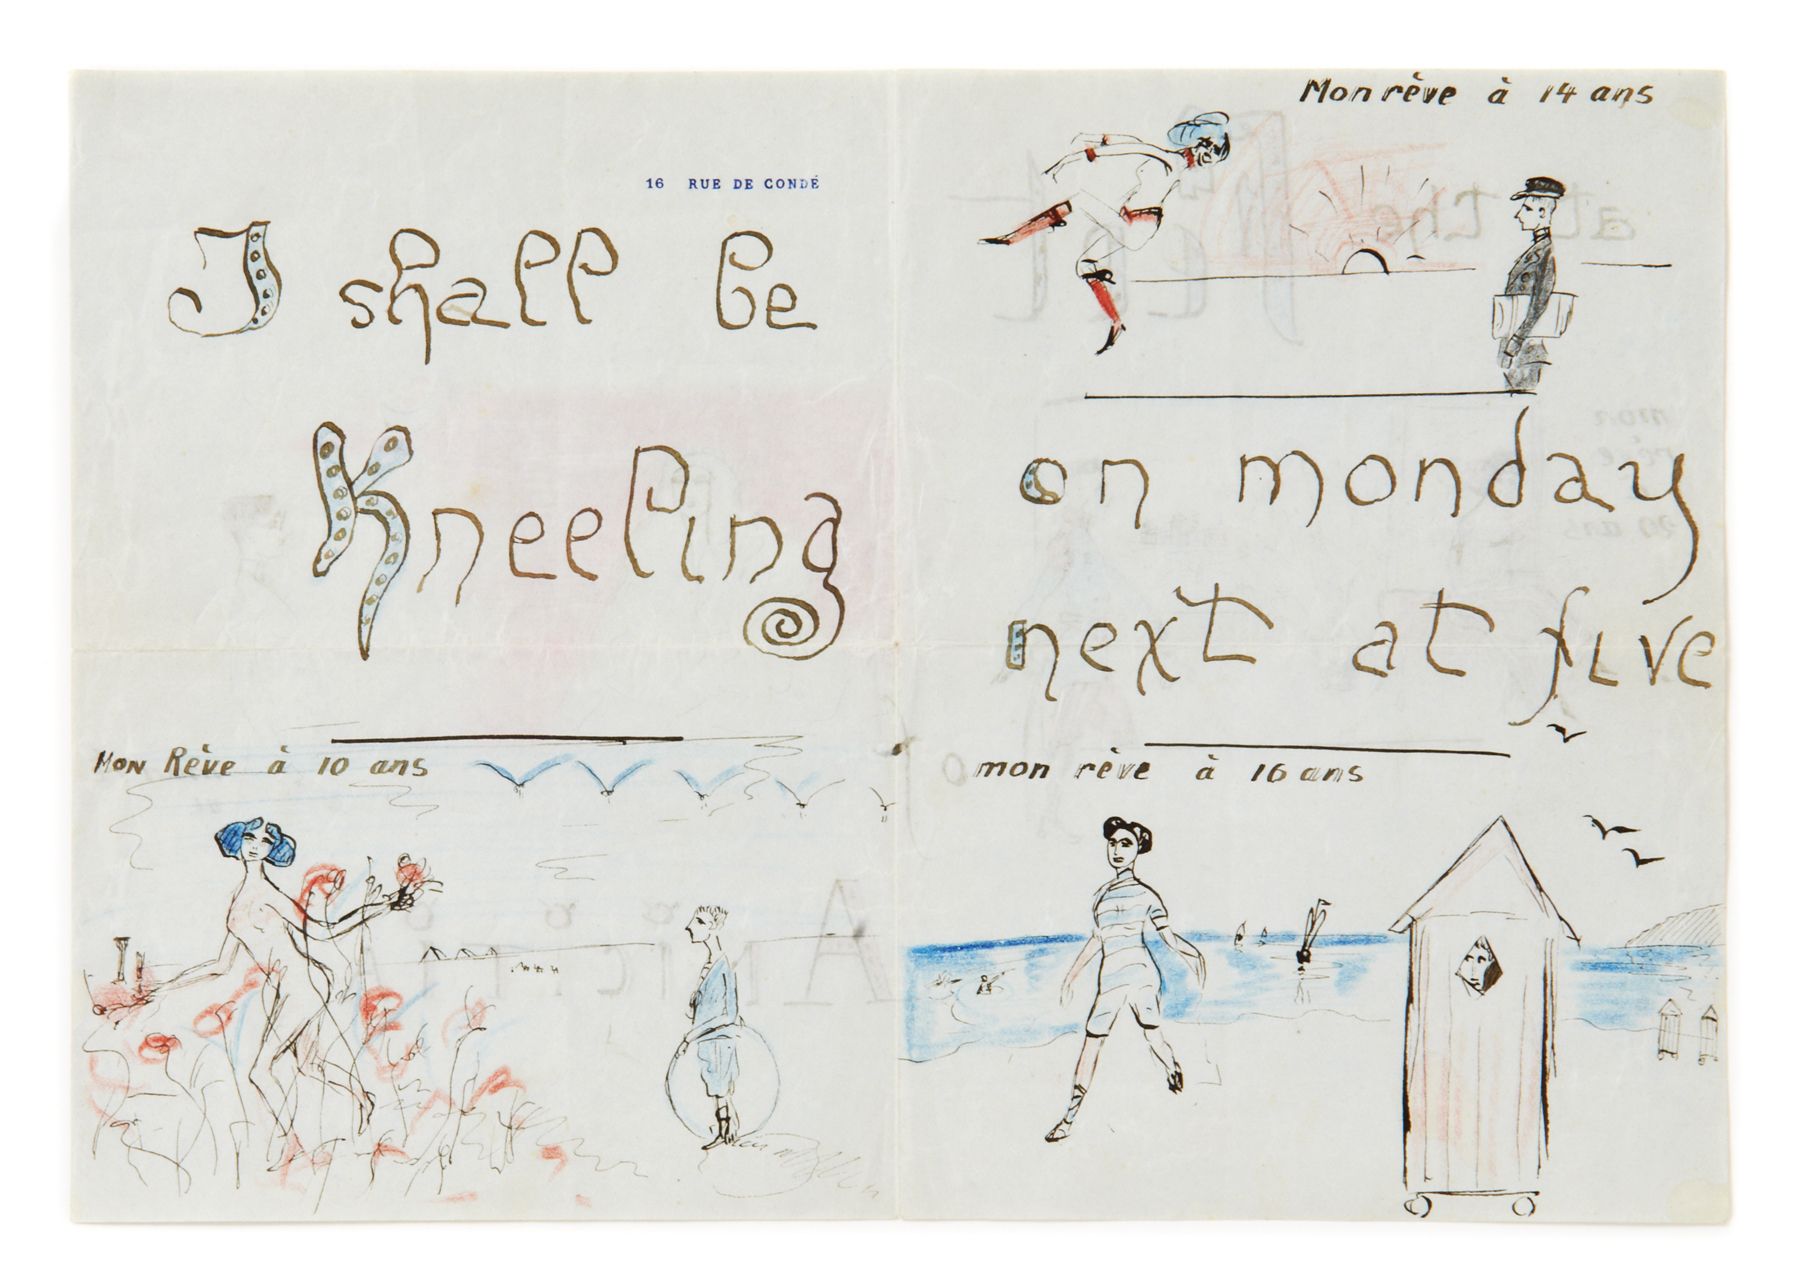 16 RUE DE CONDÉ
I shall be
Kneeling
Mon Rêve à 10 ans
Mon rêve à 14 ans
on monday
next at five
mon rêve à 16 ans